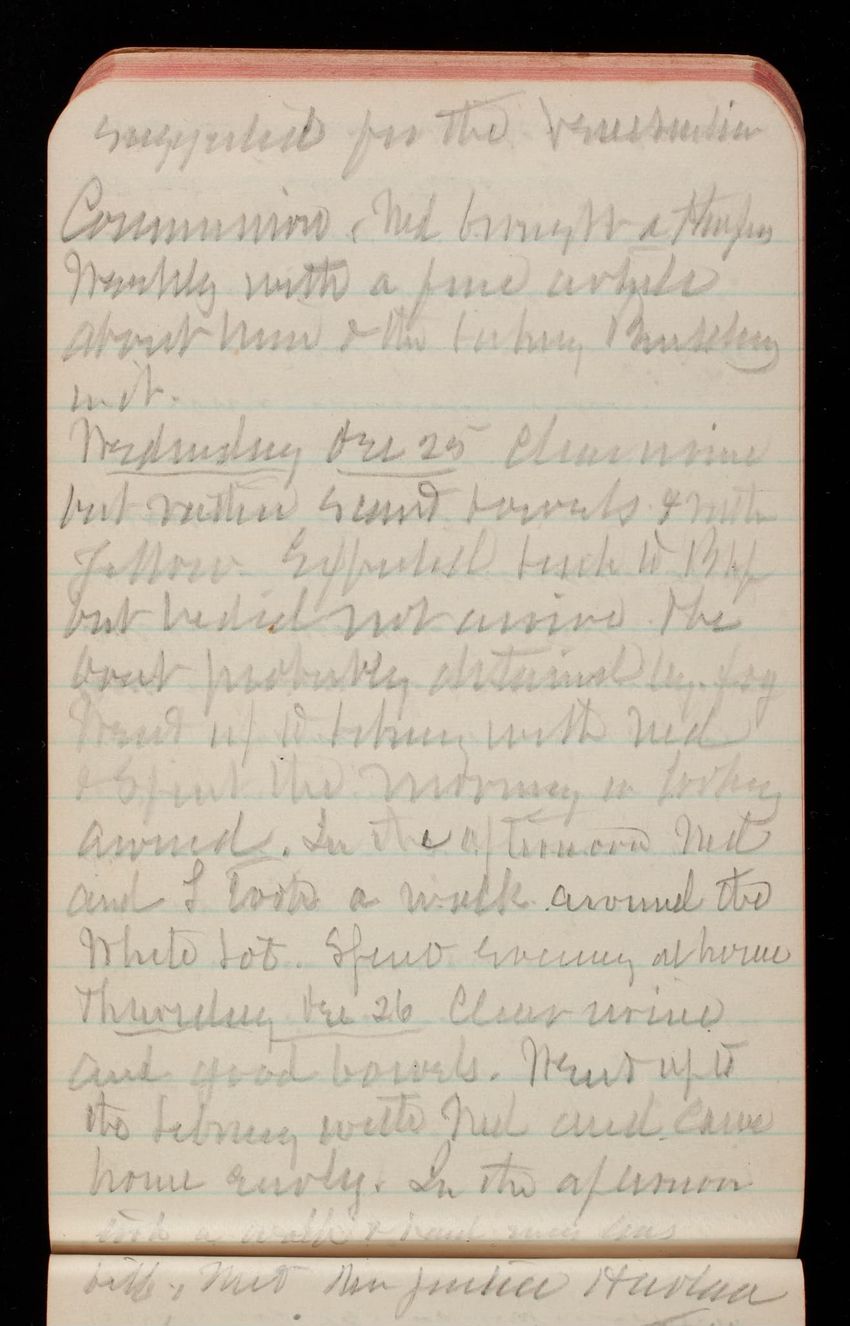 suggested for the Venezuelan
Commission. Ned brought a Harpers
Weekly with a fine article
about him & the Library Building
in it.
Wednesday Dec 25 Clear urine
but rather scant bowels & rather
yellow. Expected
but he did not arrive. The
boat probably detained by fog
Went up to Library with Ned
& Spent the morning in looking
around. In the afternoon Ned
and I took a walk around the
White Lot. Spent evening at home
Thursday Dec 26 Clear urine
and good bowels. Went up to
the Library with Ned and came
home early. In the afternoon
took a walk & paid my gas
bill. Met Mr Justice Harlan